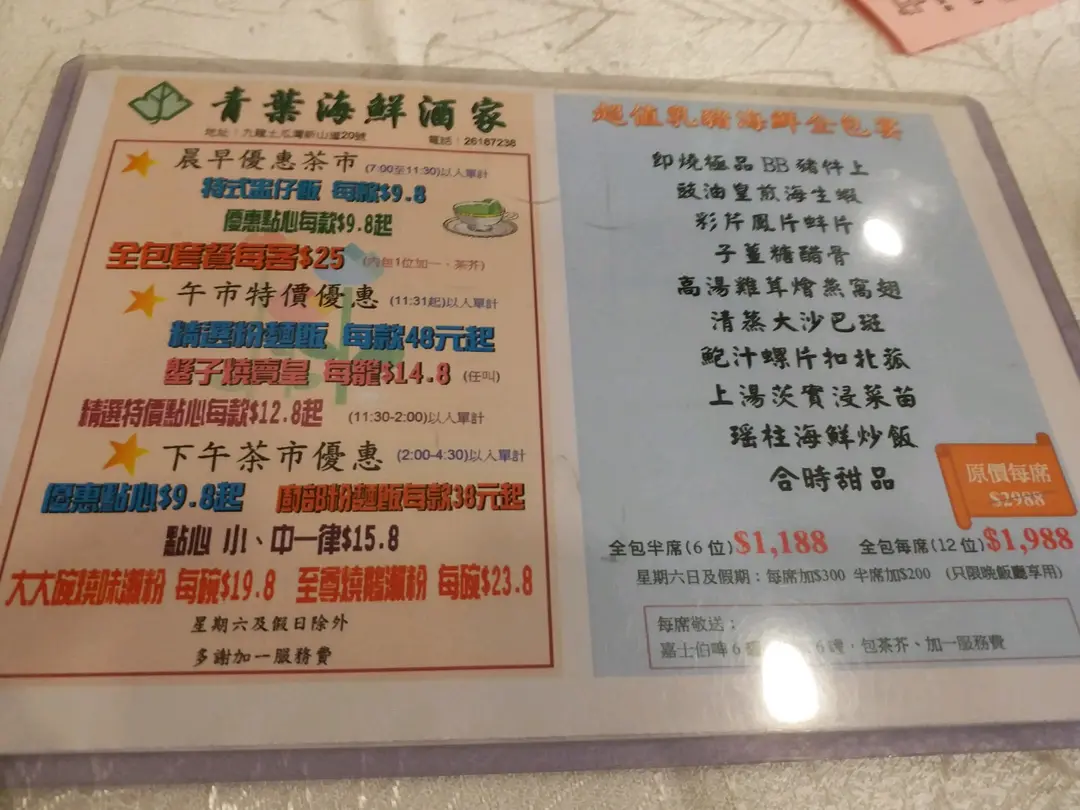 青葉海鮮酒家
地址：九龍土瓜灣新山道20號 電話：26187238
晨早優惠茶市 (7:00至11:30)以人單計
特式盅仔飯 每款$9.8
優惠點心每款$9.8起
全包套餐每客$25 (內包1位加一、茶芥)
午市特價優惠 (11:31起)以人單計
精選粉麵飯 每款48元起
蟹子燒賣皇 每籠$14.8 (任叫)
精選特價點心每款$12.8起 (11:30-2:00)以人單計
下午茶市優惠 (2:00-4:30)以人單計
優惠點心$9.8起 廚部粉麵飯每款38元起
點心 小、中一律$15.8
大大碗燒味瀨粉 每碗$19.8 至尊燒鵝瀨粉 每碗$23.8
星期六及假日除外
多謝加一服務費
超值乳豬海鮮全包宴
即燒極品BB豬件上
豉油皇煎海生蝦
彩片鳳片蚌片
子薑糖醋骨
高湯雞茸燴燕窩翅
清蒸大沙巴斑
鮑汁螺片扣北菰
上湯茨實浸菜苗
瑤柱海鮮炒飯
合時甜品
原價每席
$2988
全包半席(6位)$1,188 全包每席(12位)$1,988
星期六日及假期：每席加$300 半席加$200 (只限晚飯廳享用)
每席敬送：
嘉士伯啤6 6罐，包茶芥、加一服務費